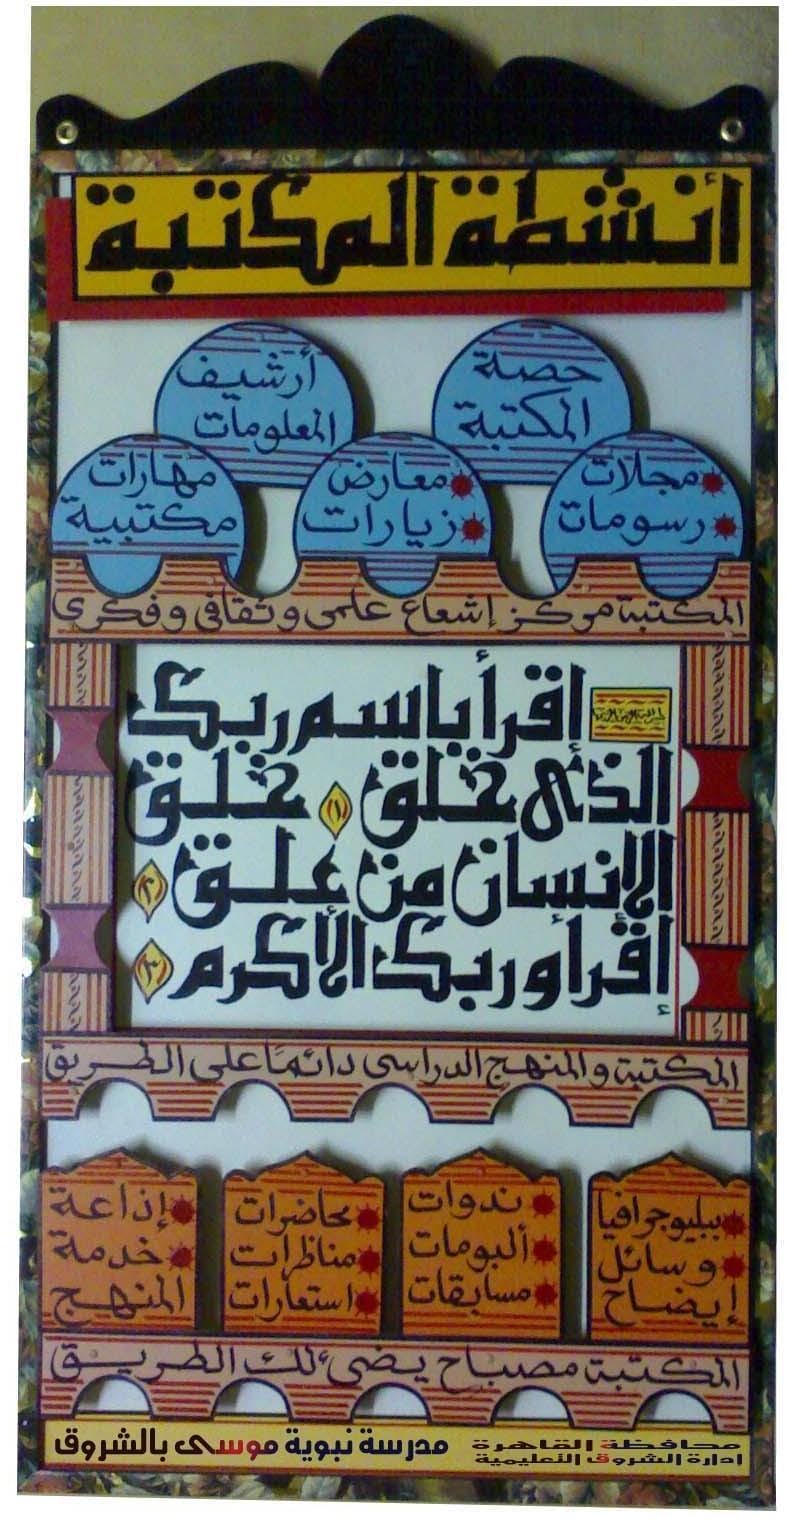 أنشطة المكتبة
حصة
المكتبة
أرشيف
المعلومات
مجلات
رسومات
معارض
زيارات
مهارات
مكتبية
المكتبة مركز إشعاع علمى وثقافى وفكرى
إقرأ باسم ربك
الذى خلق ١ خلق
الإنسان من علق ٢
إقرأ وربك الأكرم ٣
المكتبة والمنهج الدراسى دائمًا على الطريق
ببليوجرافيا
وسائل
إيضاح
ندوات
ألبومات
مسابقات
محاضرات
مناظرات
استعارات
إذاعة
خدمة
المنهج
المكتبة مصباح يضئ لك الطريق
محافظة القاهرة
ادارة الشروق التعليمية
مدرسة نبوية موسى بالشروق